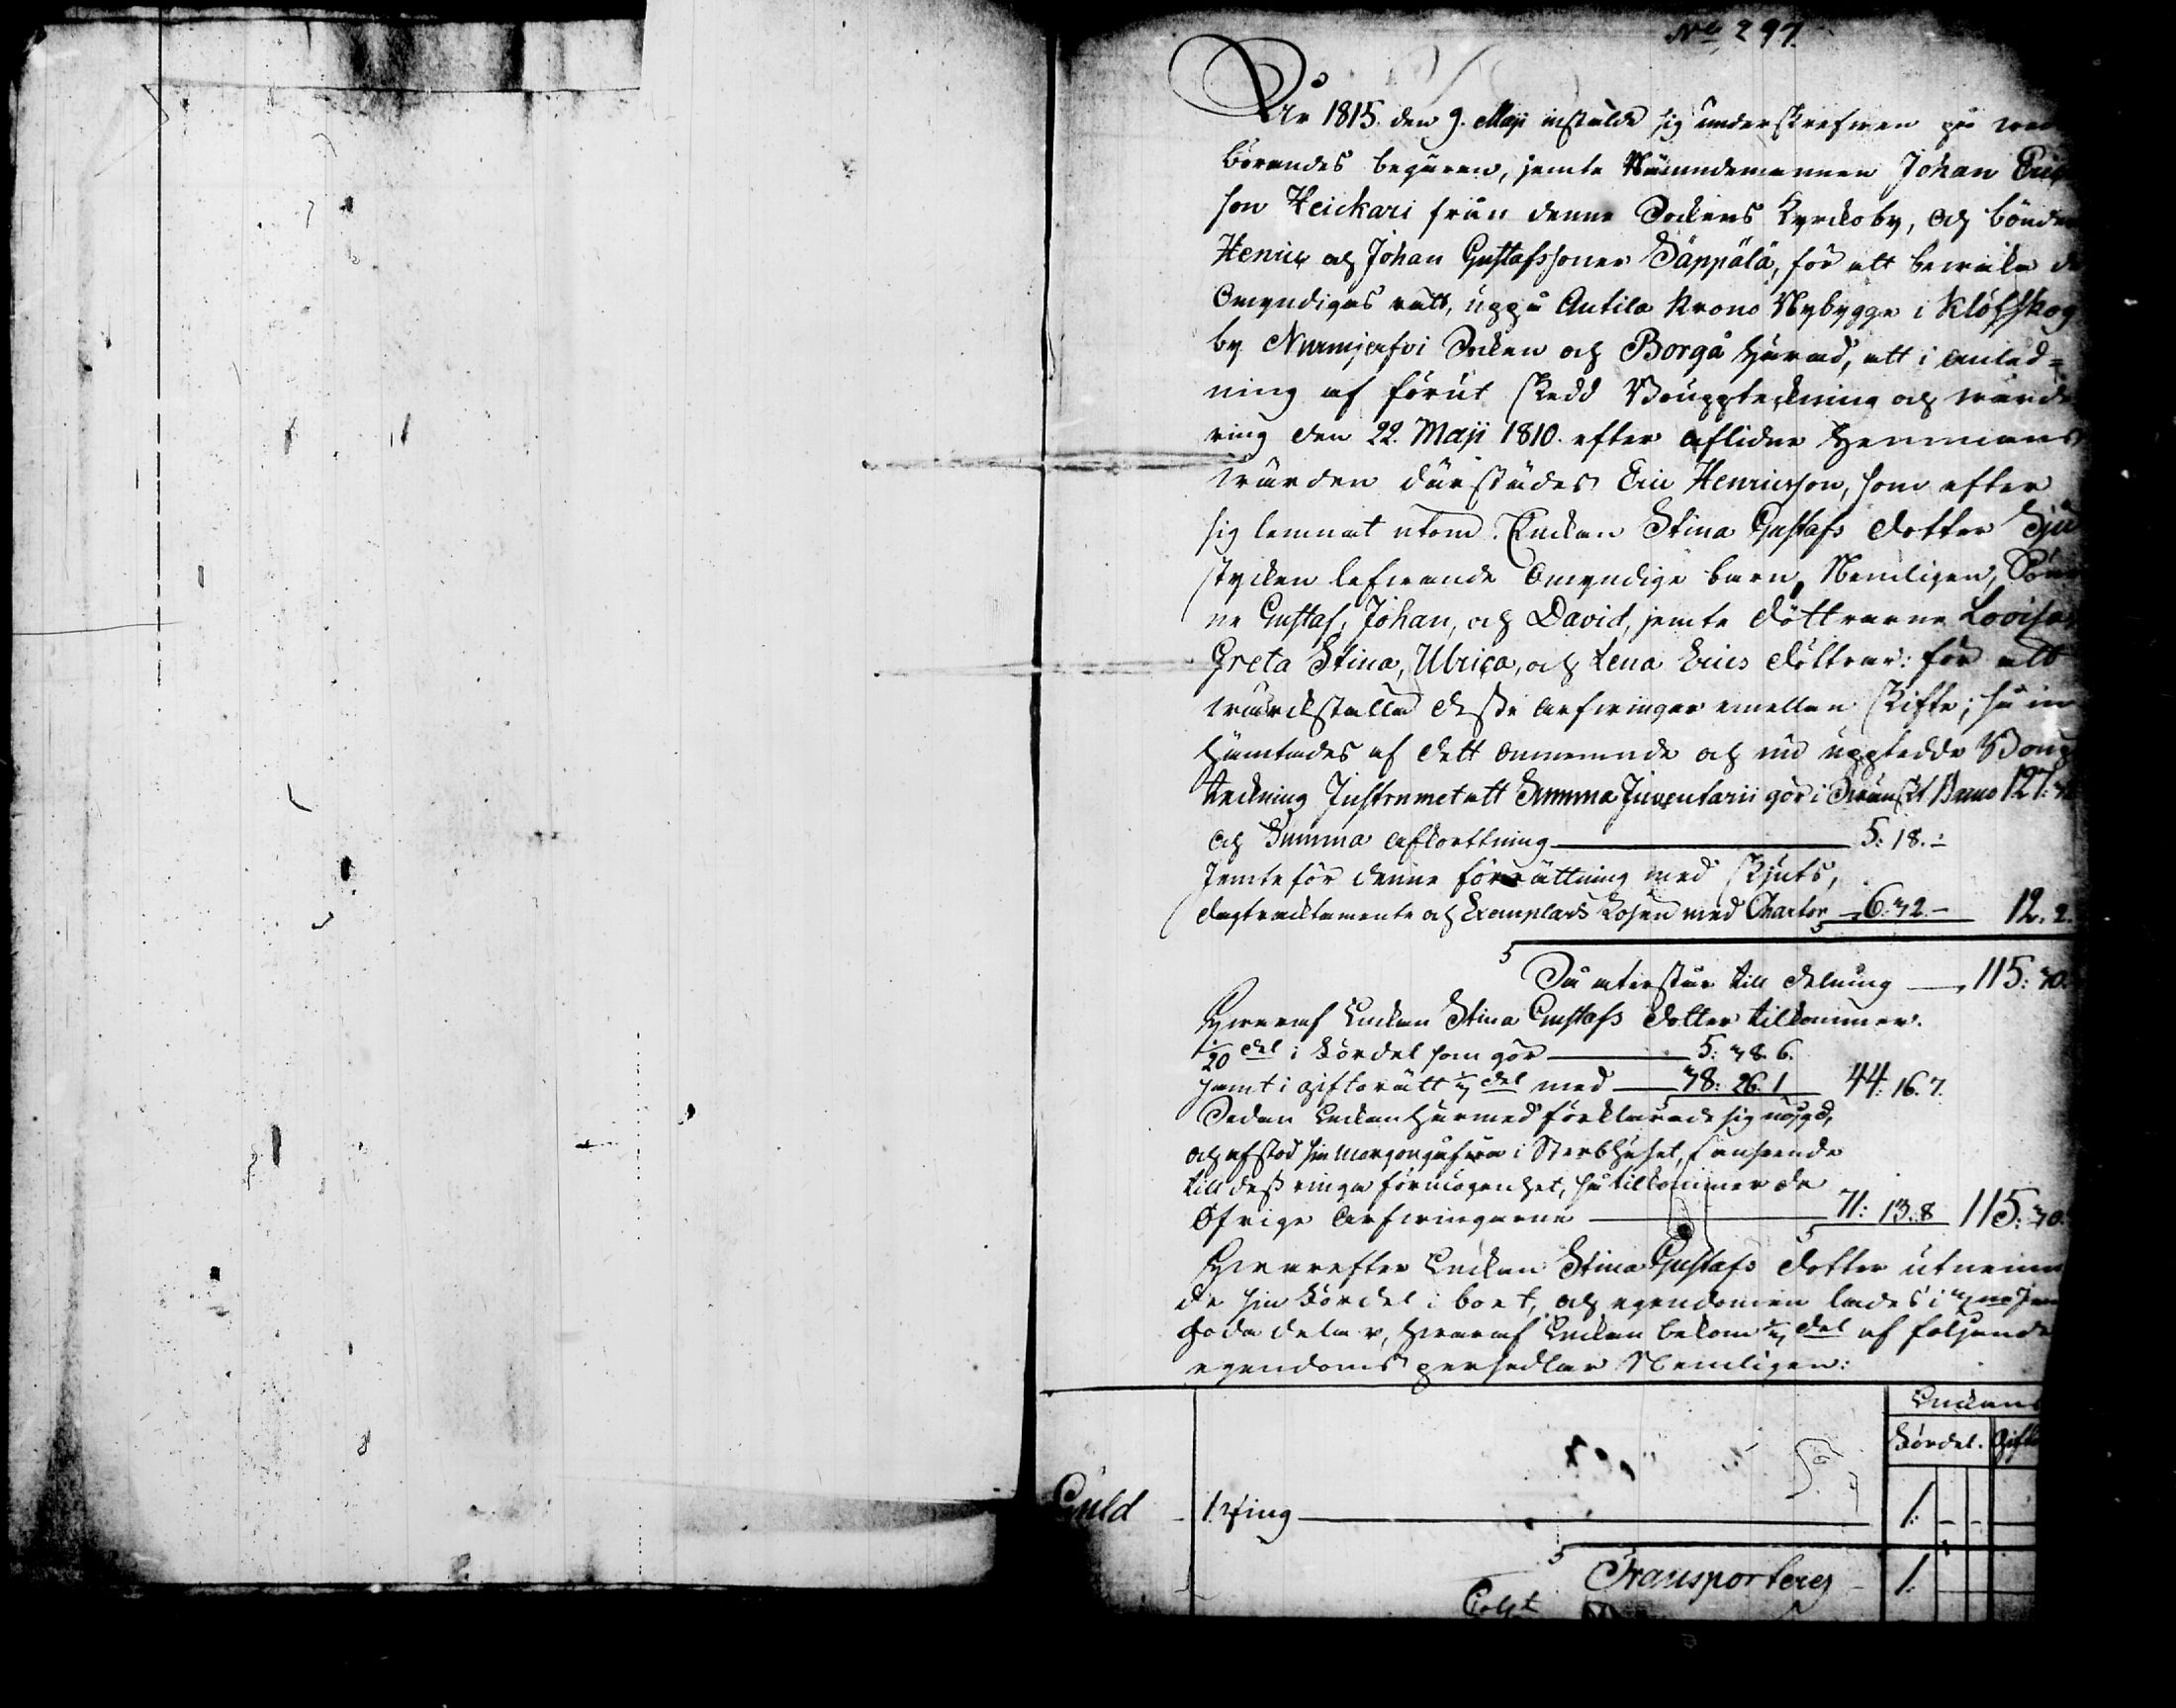 No 297.
År 1815 den 9. Maji instälde sig underskrefwen på wed
börandes begäran, jemte Nämndemannen Johan Eric
son Heickari från denne Sockens Kyrckoby, och bönder
Henric och Johan Gustafssöner Säppälä, för att bewaka de
Omyndigas rätt, uppå Antila Krono Nybygge i Klöfskog
by Nurmijerfvi Socken och Borgå Härad, att i anled=
ning af förut skedd Bouppteckning och wärde
ring den 22. Maji 1810. efter aflidne Hemmans
Wärden därstädes Eric Henricsson, som efter
sig lemnat utom Enckan Stina Gustafs dotter Sju
stycken lefwande Omyndige barn, Nemligen, Söner
ne Gustaf, Johan, och David, jemte döttrarne Lovisa,
Greta Stina, Ulrica, och Lena Erics döttrar: för att
wärckställa desse arfwingar emellan Skifte; så in
hämtades af dett omnemnde och nu uppledde Boup
teckning Instrumet att Summa Inventarii gör i Swänskt Banco 127:
och Summa afkorttning 5: 18. -
Jemte för denne förrättning med Skjuts,
dagtracktamente och Exemplars Lösen med Charter 6: 32. - 12. 2.
Så återstår till delning 115: 30.
Hwaraf Enckan Stina Gustafs dotter tillkommer.
1/20 del i Fördel som gör 5: 38. 6.
samt i giftorätt 1/3 del med 38: 26. 1 44: 16. 7.
Sedan Enckan härmed förklarade sig nöjgd,
och afstod sin morgongåfwa i Sterbhuset, i anseende
till dess ringa förmögenhet, så tillkommer de
Öfrige Arfwingarne 71: 13. 8 115: 30.
Hwarefter Enckan Stina Gustafs dotter utnämn
de sin Fördel i boet, och egendomen lades i 3ne jemn
goda delar, hwaraf Enckan bekom 1/3 del af följande
egendoms persedlar Nemligen:
Enckans
Fördel. Gifto
Guld 1 Ring 1. - -
Transporteres 1.